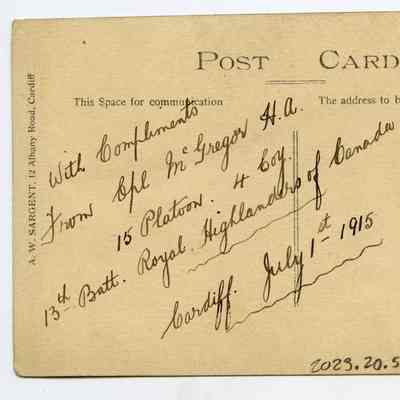 POST CARD
This Space for communication
The address to b
A. W. SARGENT, 12 Albany Road, Cardiff
With Compliments
From Cpl McGregor H.A.
15 Platoon. 4 Coy.
13th Batt. Royal Highlanders of Canada
Cardiff. July 1st 1915
2023.20.5